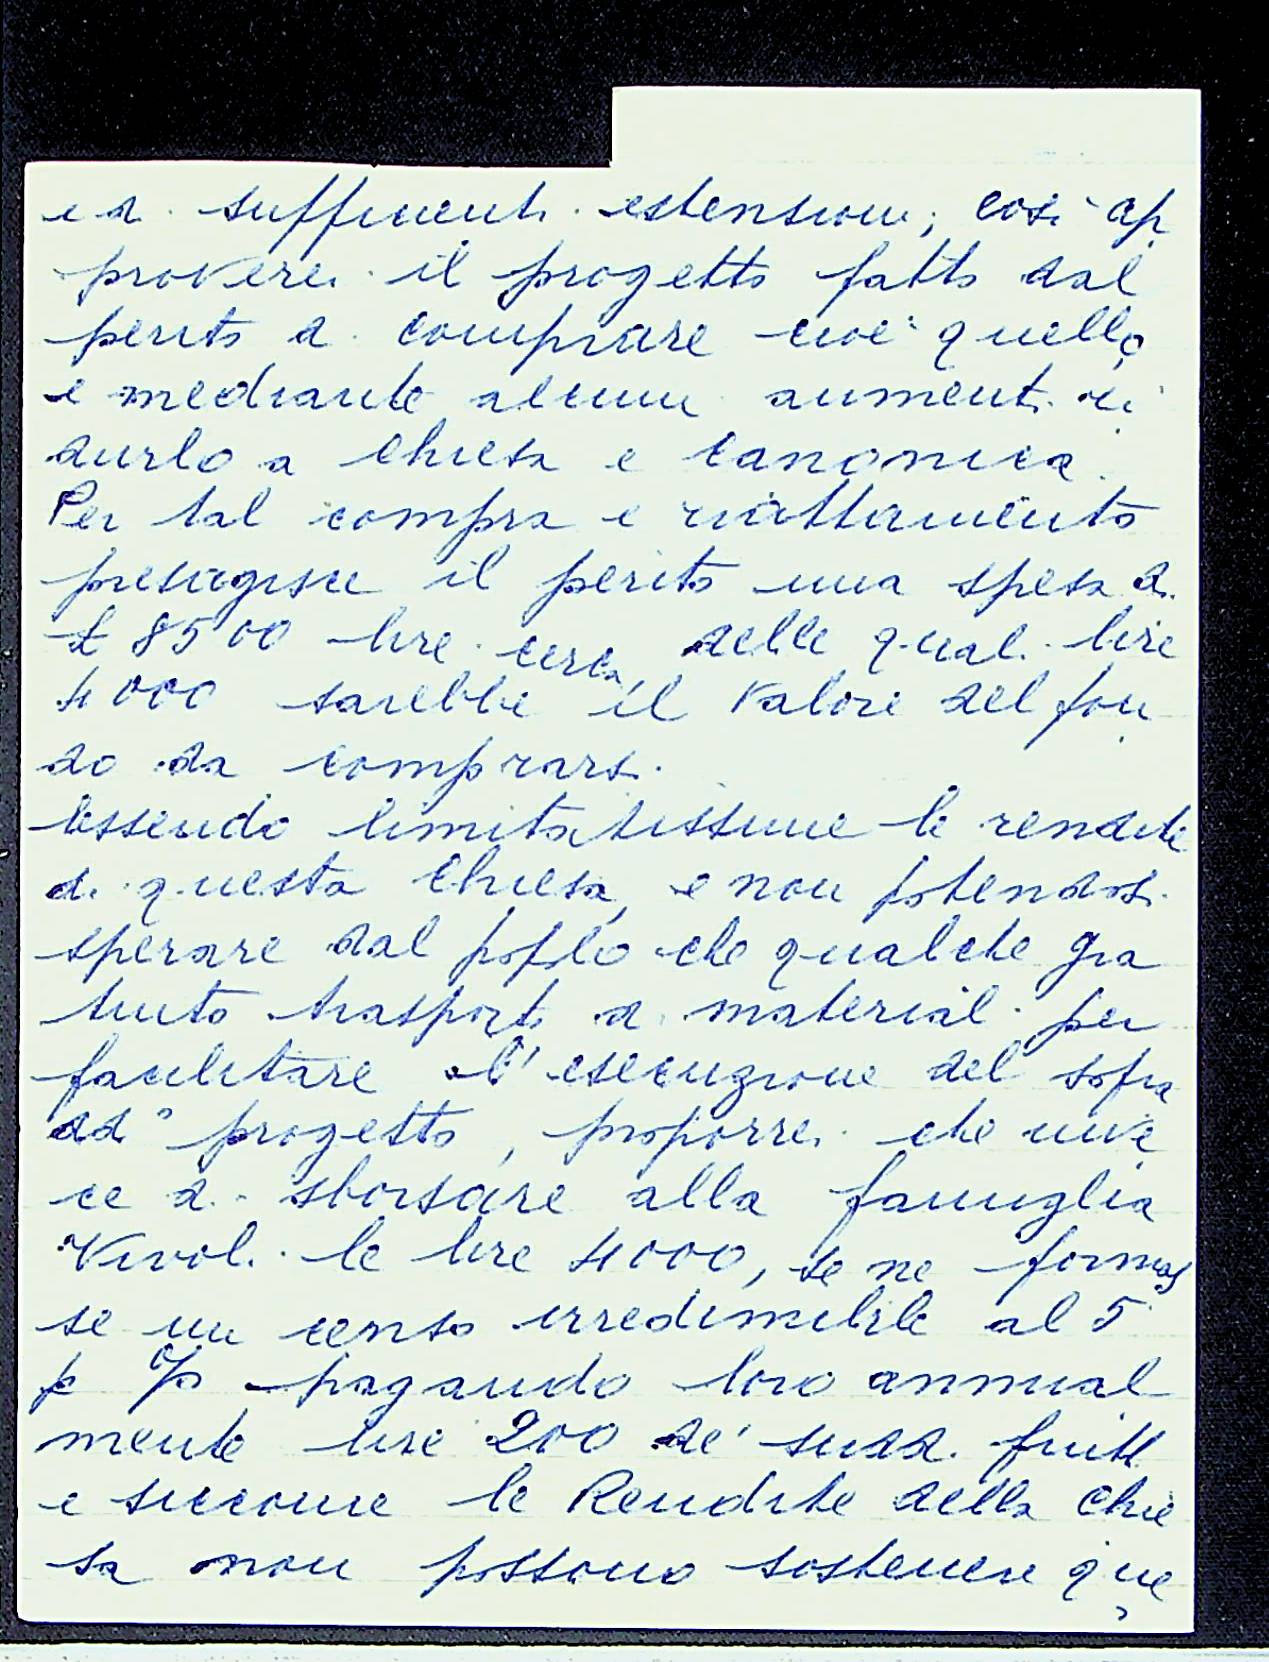 e di sufficienti estensioni, così ap
proverei il progetto fatto dal
perito di comprare cioè quello
e mediante alcuni aumenti ri
durlo a Chiesa e canonica.
Per tal compra e riattamento
presagisce il perito una spesa di
£ 8500 lire circa, delle quali lire
4000 sarebbe il valore del fon
do da comprarsi.
Essendo limitatissime le rendite
di questa Chiesa, e non potendosi
sperare dal popolo che qualche gra
tuito trasporto di materiali per
facilitare l'esecuzione del sopra
dd° progetto, proporrei che inve
ce di sborsare alla famiglia
Vivoli le lire 4000, se ne formas
se un censo irredimibile al 5
p % pagando loro annual
mente lire 200 de' sudd. frutti
e siccome le Rendite della Chie
sa non possono sostenere que